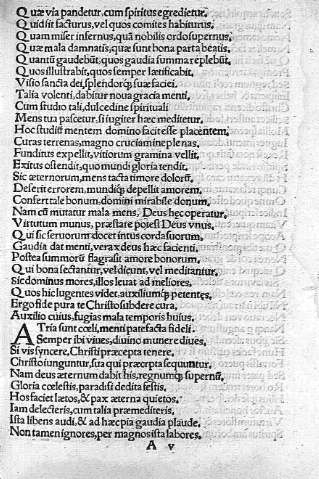 Quæ via pandetur, cum spiritus egredietur,
Quid sit facturus, vel quos comites habiturus.
Quam miser infernus, quã nobilis ordo supernus,
Quæ mala damnatis, quæ sunt bona parta beatis.
Quantũ gaudebũt, quos gaudia summa replebũt,
Quos illustrabit, quos semper lætificabit,
Visio sancta dei, splendorq; suæ faciei.
Talia volenti, dabitur noua gracia menti,
Cum studio tali, dulcedine spirituali
Mens tua pascetur, si iugiter hæc meditetur.
Hoc studiũ mentem domino facit esse placentem,
Curas terrenas, magno cruciamine plenas,
Funditus expellit, vitiorum gramina vellit,
Exitus ostendit, quo mundi gloria tendit.
Sic æternorum, mens tacta timore dolorũ,
Deserit errorem, mundiq; depellit amorem.
Confert tale bonum, domini mirabile donum,
Nam cũ mutatur mala mens, Deus hęc operatur,
Virtutum munus, præstare potest Deus vnus,
Qui sic seruorum docet intus corda suorum,
Gaudia dat menti, vera deus hæc facienti.
Postea summorũ flagrasit amore bonorum,
Qui bona sectantur, vel dicunt, vel meditantur.
Sic dominus mores, illos leuat ad meliores,
Quos hic lugentes videt, auxiliumq; petentes,
Ergo fide pura te Christo subdere cura,
Auxilio cuius, fugias mala temporis huius.
ATria sunt cœli, menti patefacta fideli
Semper ibi viues, diuino munere diues,
Si vis syncere, Christi præcepta tenere.
Christo iunguntur, sua qui præcepta sequuntur,
Nam deus æternum dabit his, regnumq; supernũ,
Gloria cœlestis, paradisi dedita festis.
Hos faciet lætos, & pax æterna quietos.
Iam delecteris, cum talia præmediteris,
Ista libens audi, & ad hæc pia gaudia plaude,
Non tamen ignores, per magnos ista labores,
A v